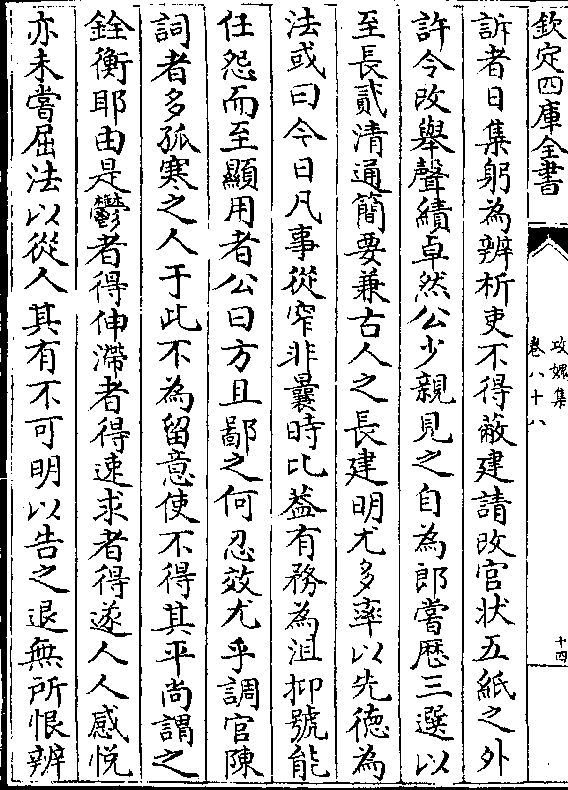 欽定四庫全書
攻媿集
卷八十八
十四
訴者日集躬為辨析吏不得蔽建請改官狀五紙之外
許令改舉聲績卓然公少親見之自為郎嘗歴三選以
至長貳清通簡要兼古人之長建明尤多率以先徳為
法或曰今日凡事從窄非曩時比葢有務為沮抑號能
任怨而至顯用者公曰方且鄙之何忍效尤乎調官陳
詞者多孤寒之人于此不為留意使不得其平尚謂之
銓衡耶由是鬱者得伸滯者得速求者得遂人人感悦
亦未嘗屈法以從人其有不可明以告之退無所恨辨